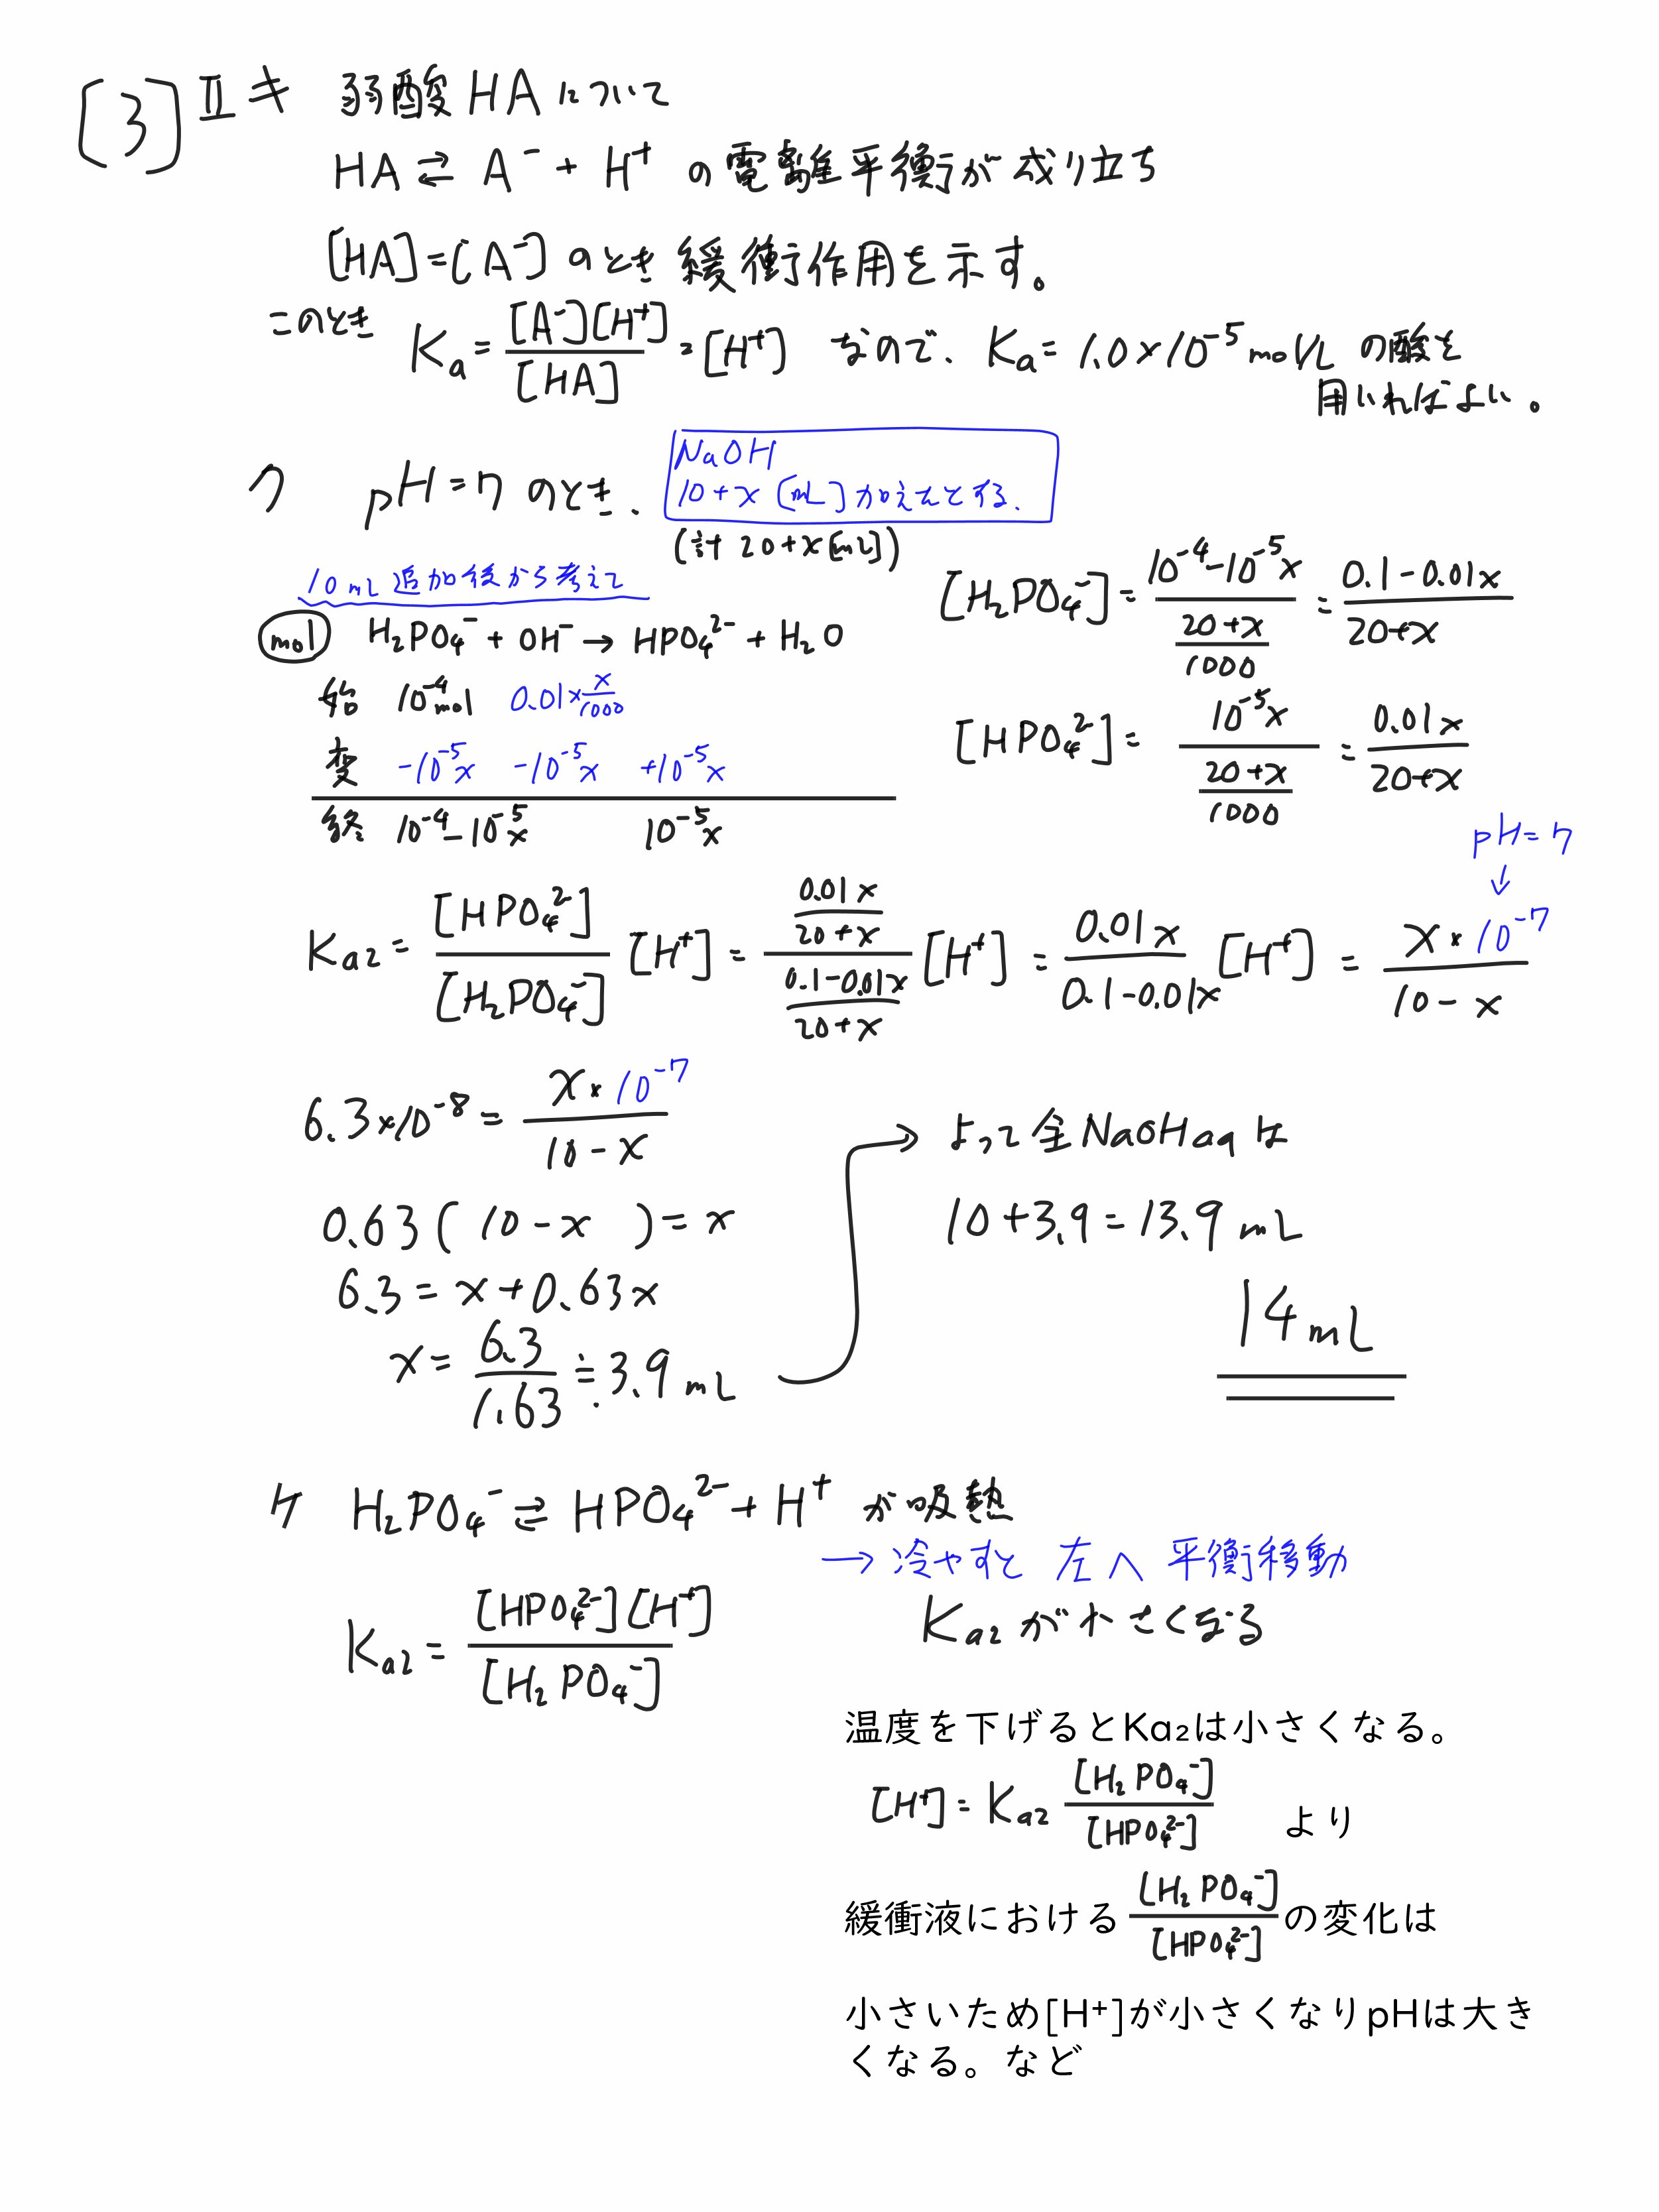 [3] Ⅱキ 弱酸HAについて
HA⇄A⁻+H⁺の電離平衡が成り立ち
[HA]=[A⁻]のとき緩衝作用を示す。
このとき Ka=[A⁻][H⁺]/[HA]=[H⁺] なので、Ka=1.0×10⁻⁵mol/Lの酸を
用いればよい。
ク pH=7のとき、
NaOH
10+x[mL]加えたとする.
(計20+x[mL])
10mL追加後から考えて
mol H₂PO₄⁻+OH⁻→HPO₄²⁻+H₂O
始 10⁻⁴mol 0.01×x/1000
変 -10⁻⁵x -10⁻⁵x +10⁻⁵x
終 10⁻⁴-10⁻⁵x 10⁻⁵x
[H₂PO₄⁻]=(10⁻⁴-10⁻⁵x)/((20+x)/1000)=(0.1-0.01x)/(20+x)
[HPO₄²⁻]=10⁻⁵x/((20+x)/1000)=0.01x/(20+x)
pH=7
↓
Ka2=[HPO₄²⁻]/[H₂PO₄⁻] [H⁺]=(0.01x/(20+x))/((0.1-0.01x)/(20+x)) [H⁺]=0.01x/(0.1-0.01x) [H⁺]=x×10⁻⁷/(10-x)
6.3×10⁻⁸=x×10⁻⁷/(10-x)
0.63(10-x)=x
6.3=x+0.63x
x=6.3/1.63≒3.9mL
よって全NaOHaqは
10+3.9=13.9mL
14mL
ケ H₂PO₄⁻⇄HPO₄²⁻+H⁺が吸熱
→冷やすと左へ平衡移動
Ka2=[HPO₄²⁻][H⁺]/[H₂PO₄⁻]
Ka2が小さくなる
温度を下げるとKa₂は小さくなる。
[H⁺]=Ka2 [H₂PO₄⁻]/[HPO₄²⁻] より
緩衝液における[H₂PO₄⁻]/[HPO₄²⁻]の変化は
小さいため[H⁺]が小さくなりpHは大き
くなる。など